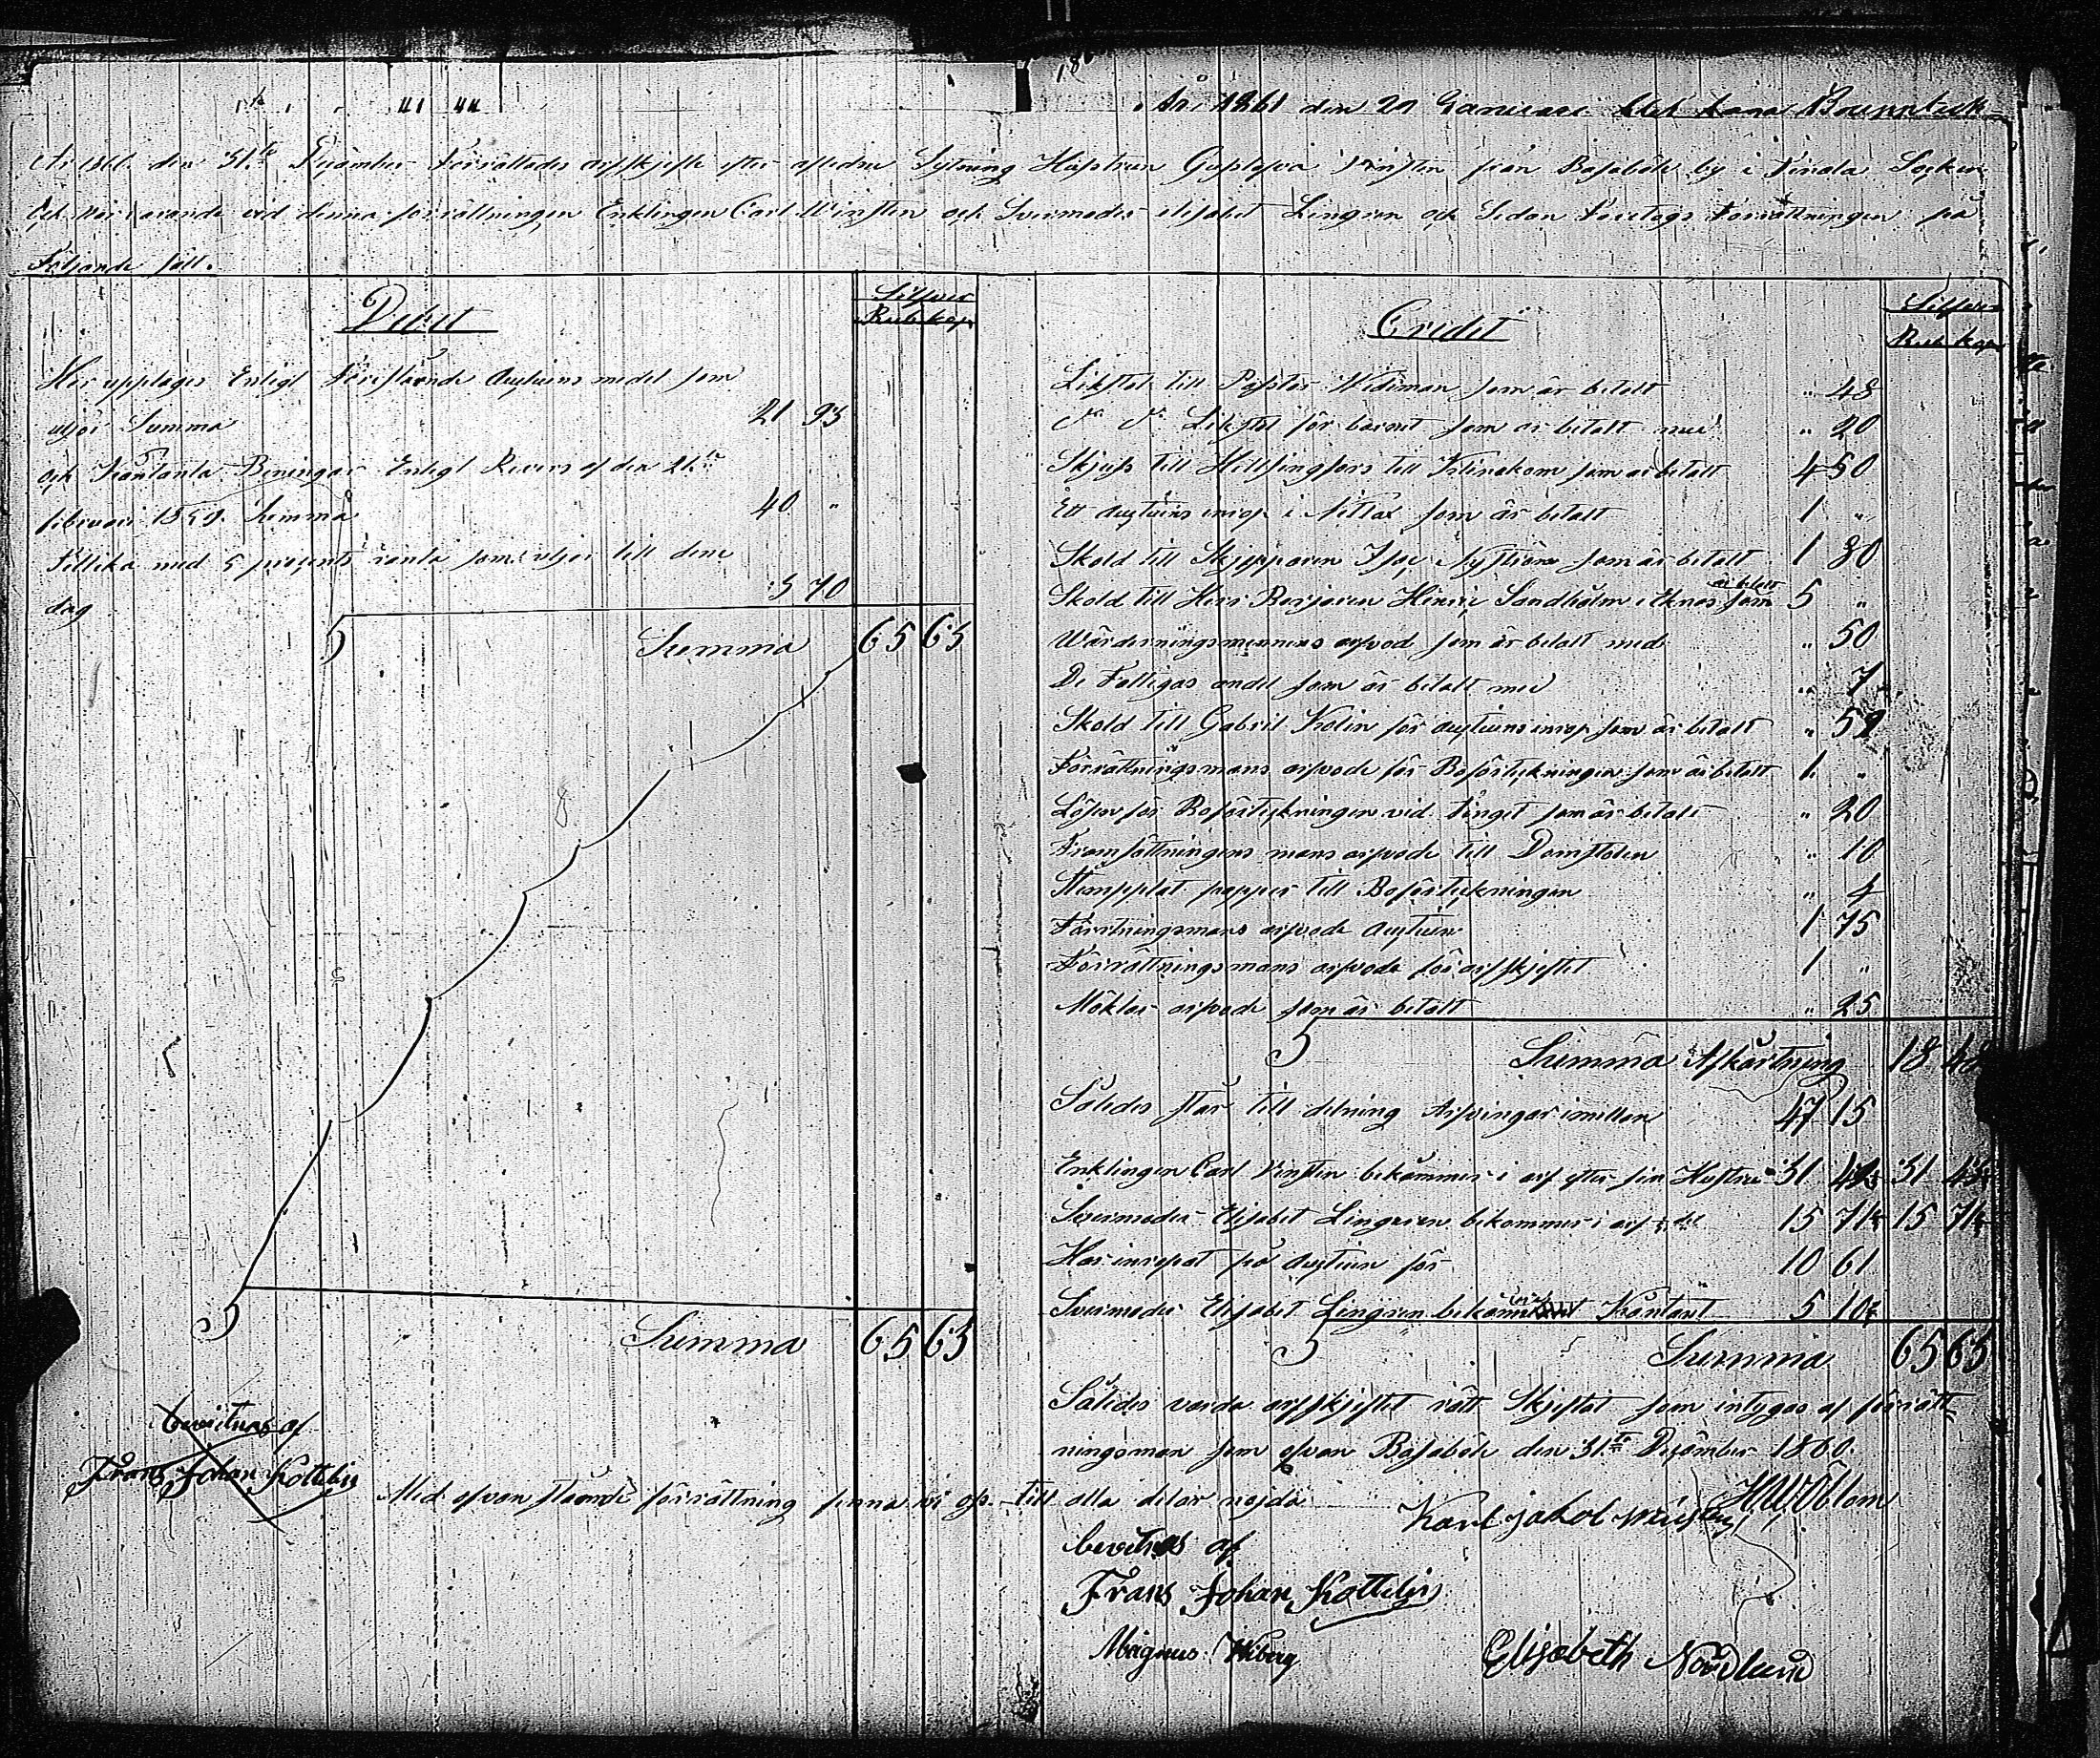 År 1861 den 21 Januari
År 1860 den 31:te Desember Förrättades arfskjifte efter afledne Sytning Hustrun Winsten från Basaböle by i Tenala Socken
Och När varande vid denna förrättningen Enklingen Carl Winsten och Svermoder elisabet Lingren och Sedan Företogs Förrättningen på
Föliande sätt.
Debet
Silfver
Rub kop
Her upptages Enligt Föreståënde Augtions medel som
utjör Summa 21 93
och Kontanta Peningar Enligt Revers af den 21:te
februari 1859. Summa 40 "
Tillika med 5 prosents ränta som utjör till denn
dag 3 70
Summa 65 63
Summa 65 63
bevitnas af
Frans Johan Kottelin
Credit
Silfver
Rub kop
Likstol till Pastor Wideman som är betalt " 48
Do Do Likstol för barnet som är betalt med " 20
Skjuss till Hillsingfors till som är betalt 4 50
Ett augtions inrop i som är betalt 1 "
Skold till Skjepparen Isac Nyström som är betalt 1 80
Skold till Herr Borjaren Henric Sandholm i Eknes som är betalt 5 "
Wärderingsmennens arfvod som är betalt med " 50
De Fattigas andel som är betalt med " 7
Skold till Gabril Kolin för augtions inrop som är betalt " 59
Förrättningsmans arfvode för Boförtekningen som är betalt 1 "
Lösen för Boförtekningen vid Tinget som är betalt " 20
Framsättningens mans arfvode till Domstolen " 10
Stempplat papper till Boförtekningen " 4
Förrtningsmans arfvode Augtion 1 75
Förrättningsmans arfvode för arfskjeftet 1 "
Möklar arfvode som är betalt " 25
Summa Afkortning 18 48
Således står till delning Arfvingar imillan 47 15
Enklingen Carl Vinsten bekommer i arf efter sin Hustru 31 43 31 43
Svermoder Elisabet Lingren bekommer i arf del 15 71 15 71
Har inropat på augtion för 10 61
Svermoder Elisabet Lingren Kontant 5 10
Summa 65 63
Således varde arfskjeftet rätt Skjeftat som intygas af förrätt
ningsman som ofvan Basaböle den 31:te Desember 1860.
Med ofvan stående förrättning finna vi oss till alla delar nöjda
Karl jakob Winsten
bevitnas af
Frans Johan Kottelin
Magnus Wiberg
Elisabeth Nordlund